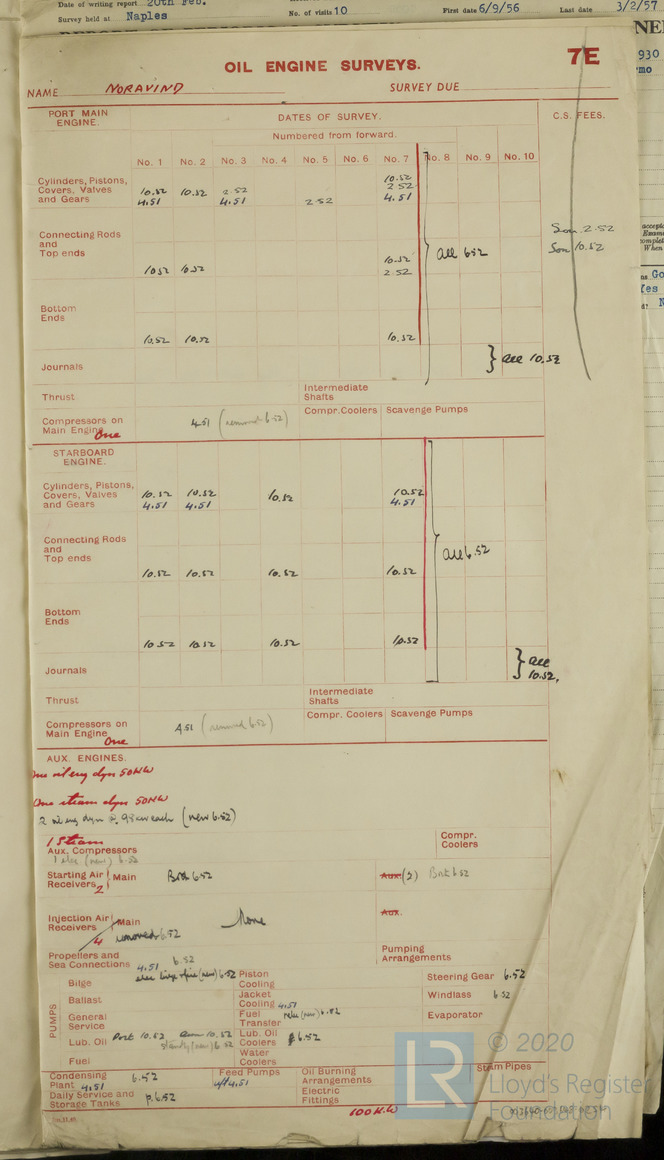 Date of writing report 20th Feb.
Survey held at Naples
No. of visits 10
First date 6/9/56
Last date 3/2/57
7E
930
OIL ENGINE SURVEYS.
NAME NORAVIND
SURVEY DUE
PORT MAIN ENGINE.
DATES OF SURVEY.
C.S. FEES.
Numbered from forward.
No. 1 No. 2 No. 3 No. 4 No. 5 No. 6 No. 7 No. 8 No. 9 No. 10
10.52
Cylinders, Pistons, 2.52
Covers, Valves 10.52 10.52 2.52
and Gears 4.51 4.51 2.52 4.51
2.52
10.52
Connecting Rods
and
Top ends 10.52
10.52 10.52 2.52
all 6.52
Bottom
Ends
10.52 10.52 10.52
Journals
all 10.52
Thrust
Intermediate
Shafts
Compressors on
Main Engine One
4.51 (removed 6.52)
Compr. Coolers
Scavenge Pumps
STARBOARD
ENGINE.
Cylinders, Pistons,
Covers, Valves 10.52 10.52 10.52 10.52
and Gears 4.51 4.51 4.51
Connecting Rods
and
Top ends
10.52 10.52 10.52 10.52
all 6.52
Bottom
Ends
10.52 10.52 10.52 10.52
Journals
all
10.52.
Thrust
Intermediate
Shafts
Compressors on
Main Engine One
4.51 (removed 6.52)
Compr. Coolers
Scavenge Pumps
AUX. ENGINES.
One oil eng dyn 50KW
One steam dyn 50KW
2 oil eng dyn @ 98 kw each (new 6.52)
1 Steam
Aux. Compressors
1 elec (new) 6.52
Compr.
Coolers
Starting Air
Receivers 2
Main
6.52
Aux. (2)
6.52
Injection Air
Receivers
4
Main
removed 6.52
None
Aux.
Propellers and
Sea Connections
4.51 6.52
Pumping
Arrangements
PUMPS
Bilge
(new) 6.52
Ballast
General
Service
Lub. Oil Port 10.52 10.52
standby (new) 6.52
Fuel
Piston
Cooling
Jacket
Cooling 4.51
Fuel
Transfer
(new) 6.52
Lub. Oil
Coolers 6.52
Water
Coolers
Steering Gear 6.52
Windlass 6.52
Evaporator
Condensing
Plant 4.51
6.52
Feed Pumps
4.51
Oil Burning
Arrangements
Steam Pipes
Daily Service and
Storage Tanks
p. 6.52
Electric
Fittings
100 K.W
© 2020
LR
Lloyd's Register
Foundation